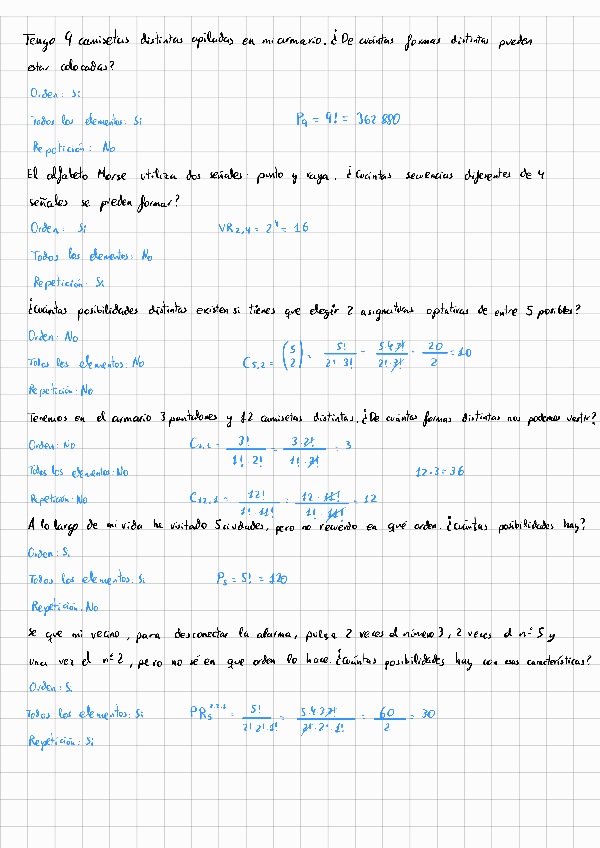 Tengo 9 camisetas distintas apiladas en mi armario. ¿De cuántas formas distintas pueden
estar colocadas?
Orden: Si
Todos los elementos: Si P₉ = 9! = 362 880
Repetición: No
El alfabeto Morse utiliza dos señales: punto y raya. ¿Cuántas secuencias diferentes de 4
señales se pueden formar?
Orden: Si VR₂,₄ = 2⁴ = 16
Todos los elementos: No
Repetición: Si
¿Cuántas posibilidades distintas existen si tienes que elegir 2 asignaturas optativas de entre 5 posibles?
Orden: No
Todos los elementos: No C₅,₂ = (5 2) = 5!/2!·3! = 5·4·3!/2!·3! = 20/2 = 10
Repetición: No
Tenemos en el armario 3 pantalones y 12 camisetas distintas. ¿De cuántas formas distintas nos podemos vestir?
Orden: No C₃,₁ = 3!/1!·2! = 3·2!/1!·2! = 3
Todos los elementos: No 12·3 = 36
Repetición: No C₁₂,₁ = 12!/1!·11! = 12·11!/1!·11! = 12
A lo largo de mi vida he visitado 5 ciudades, pero no recuerdo en qué orden. ¿Cuántas posibilidades hay?
Orden: Si
Todos los elementos: Si P₅ = 5! = 120
Repetición: No
Se que mi vecino, para desconectar la alarma, pulsa 2 veces el número 3, 2 veces el nº 5 y
una vez el nº 2, pero no sé en que orden lo hace. ¿Cuántas posibilidades hay con esas características?
Orden: Si
Todos los elementos: Si PR₅²·²·¹ = 5!/2!·2!·1! = 5·4·3·2!/2!·2!·1! = 60/2 = 30
Repetición: Si